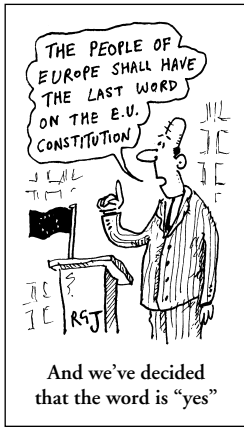 THE PEOPLE OF
EUROPE SHALL HAVE
THE LAST WORD
ON THE E.U.
CONSTITUTION
RGJ
And we've decided
that the word is “yes”